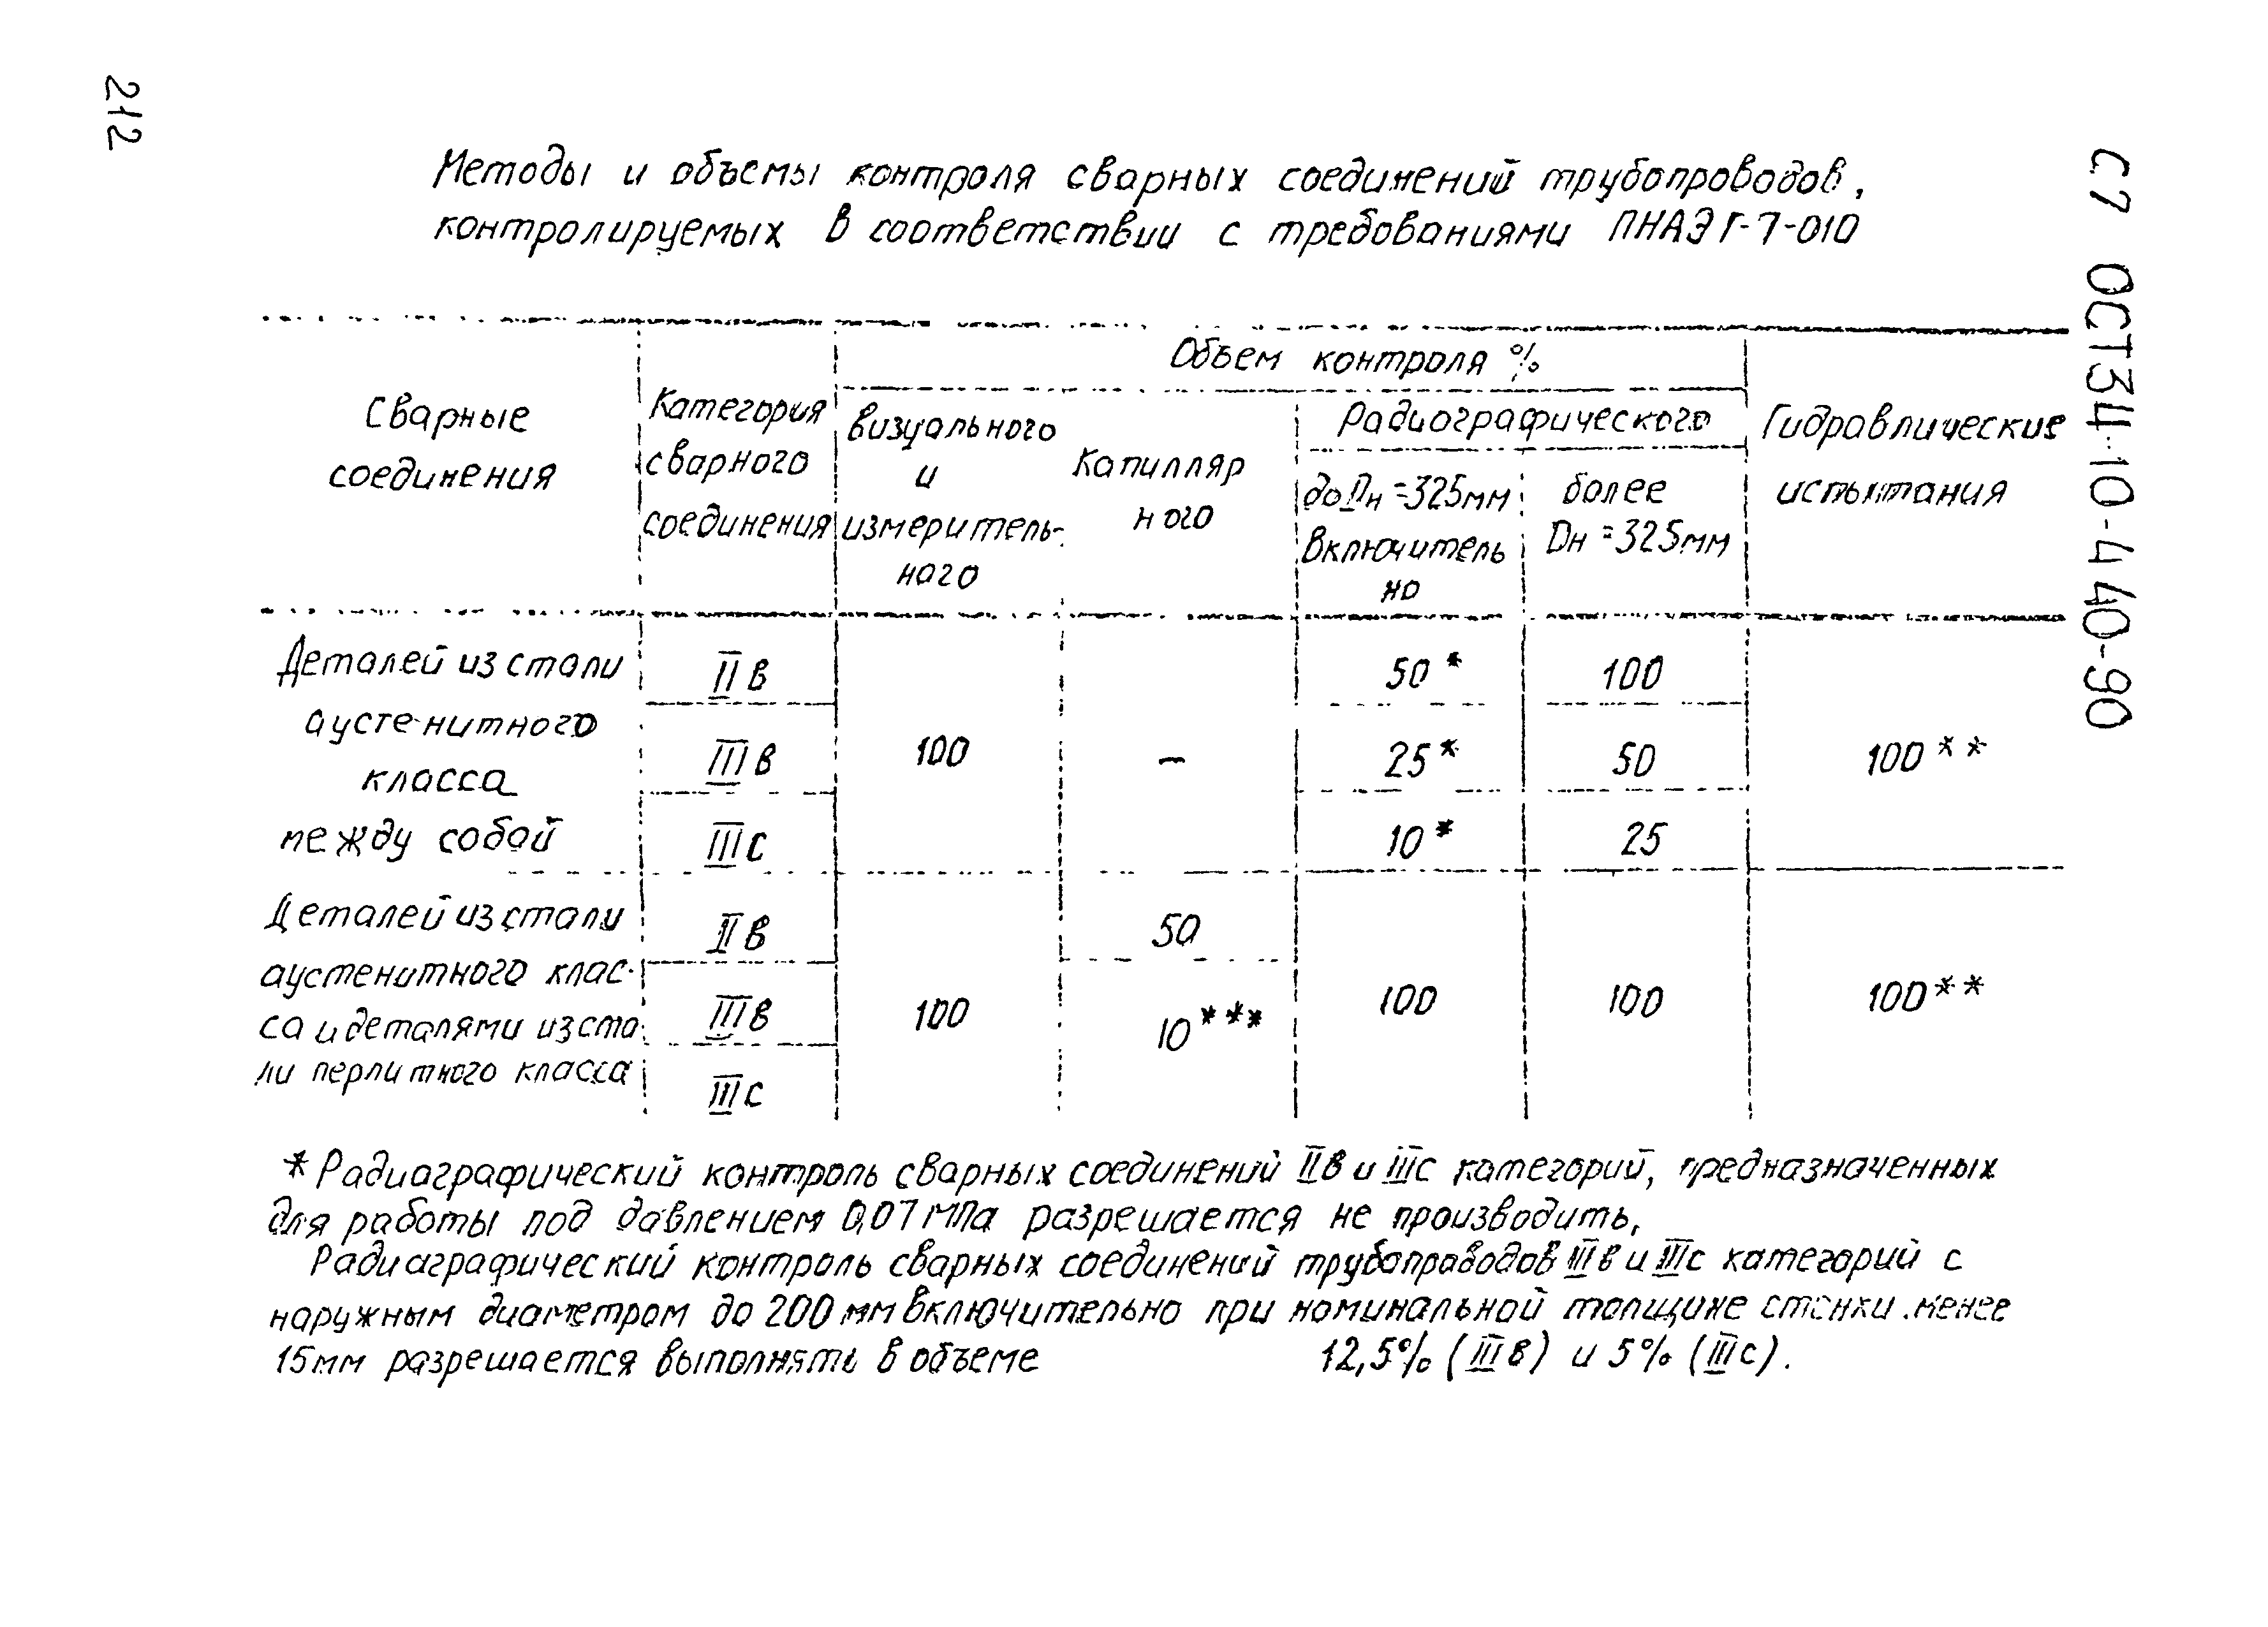 212
Методы и объемы контроля сварных соединений трубопроводов,
контролируемых в соответствии с требованиями ПНАЭ Г-7-010
С7 ОСТ34-10-440-90
Объем контроля %
Сварные
соединения
Категория
сварного
соединения
визуального
и
измеритель-
ного
Капилляр
ного
Радиографического
до Dн =325мм
включитель
но
более
Dн =325мм
Гидравлические
испытания
Деталей из стали
аустенитного
класса
между собой
IIв
IIIв
IIIс
100
—
50*
25*
10*
100
50
25
100**
Деталей из стали
аустенитного клас-
са и деталями из ста
ли перлитного класса
IIв
IIIв
IIIс
100
50
10***
100
100
100**
* Радиаграфический контроль сварных соединений IIв и IIIс категорий, предназначенных
для работы под давлением 0,07 МПа разрешается не производить,
Радиаграфический контроль сварных соединений трубопроводов IIIв и IIIс категорий с
наружным диаметром до 200 мм включительно при номинальной толщине стенки менее
15мм разрешается выполнять в объеме 12,5% (IIIв) и 5% (IIIс).